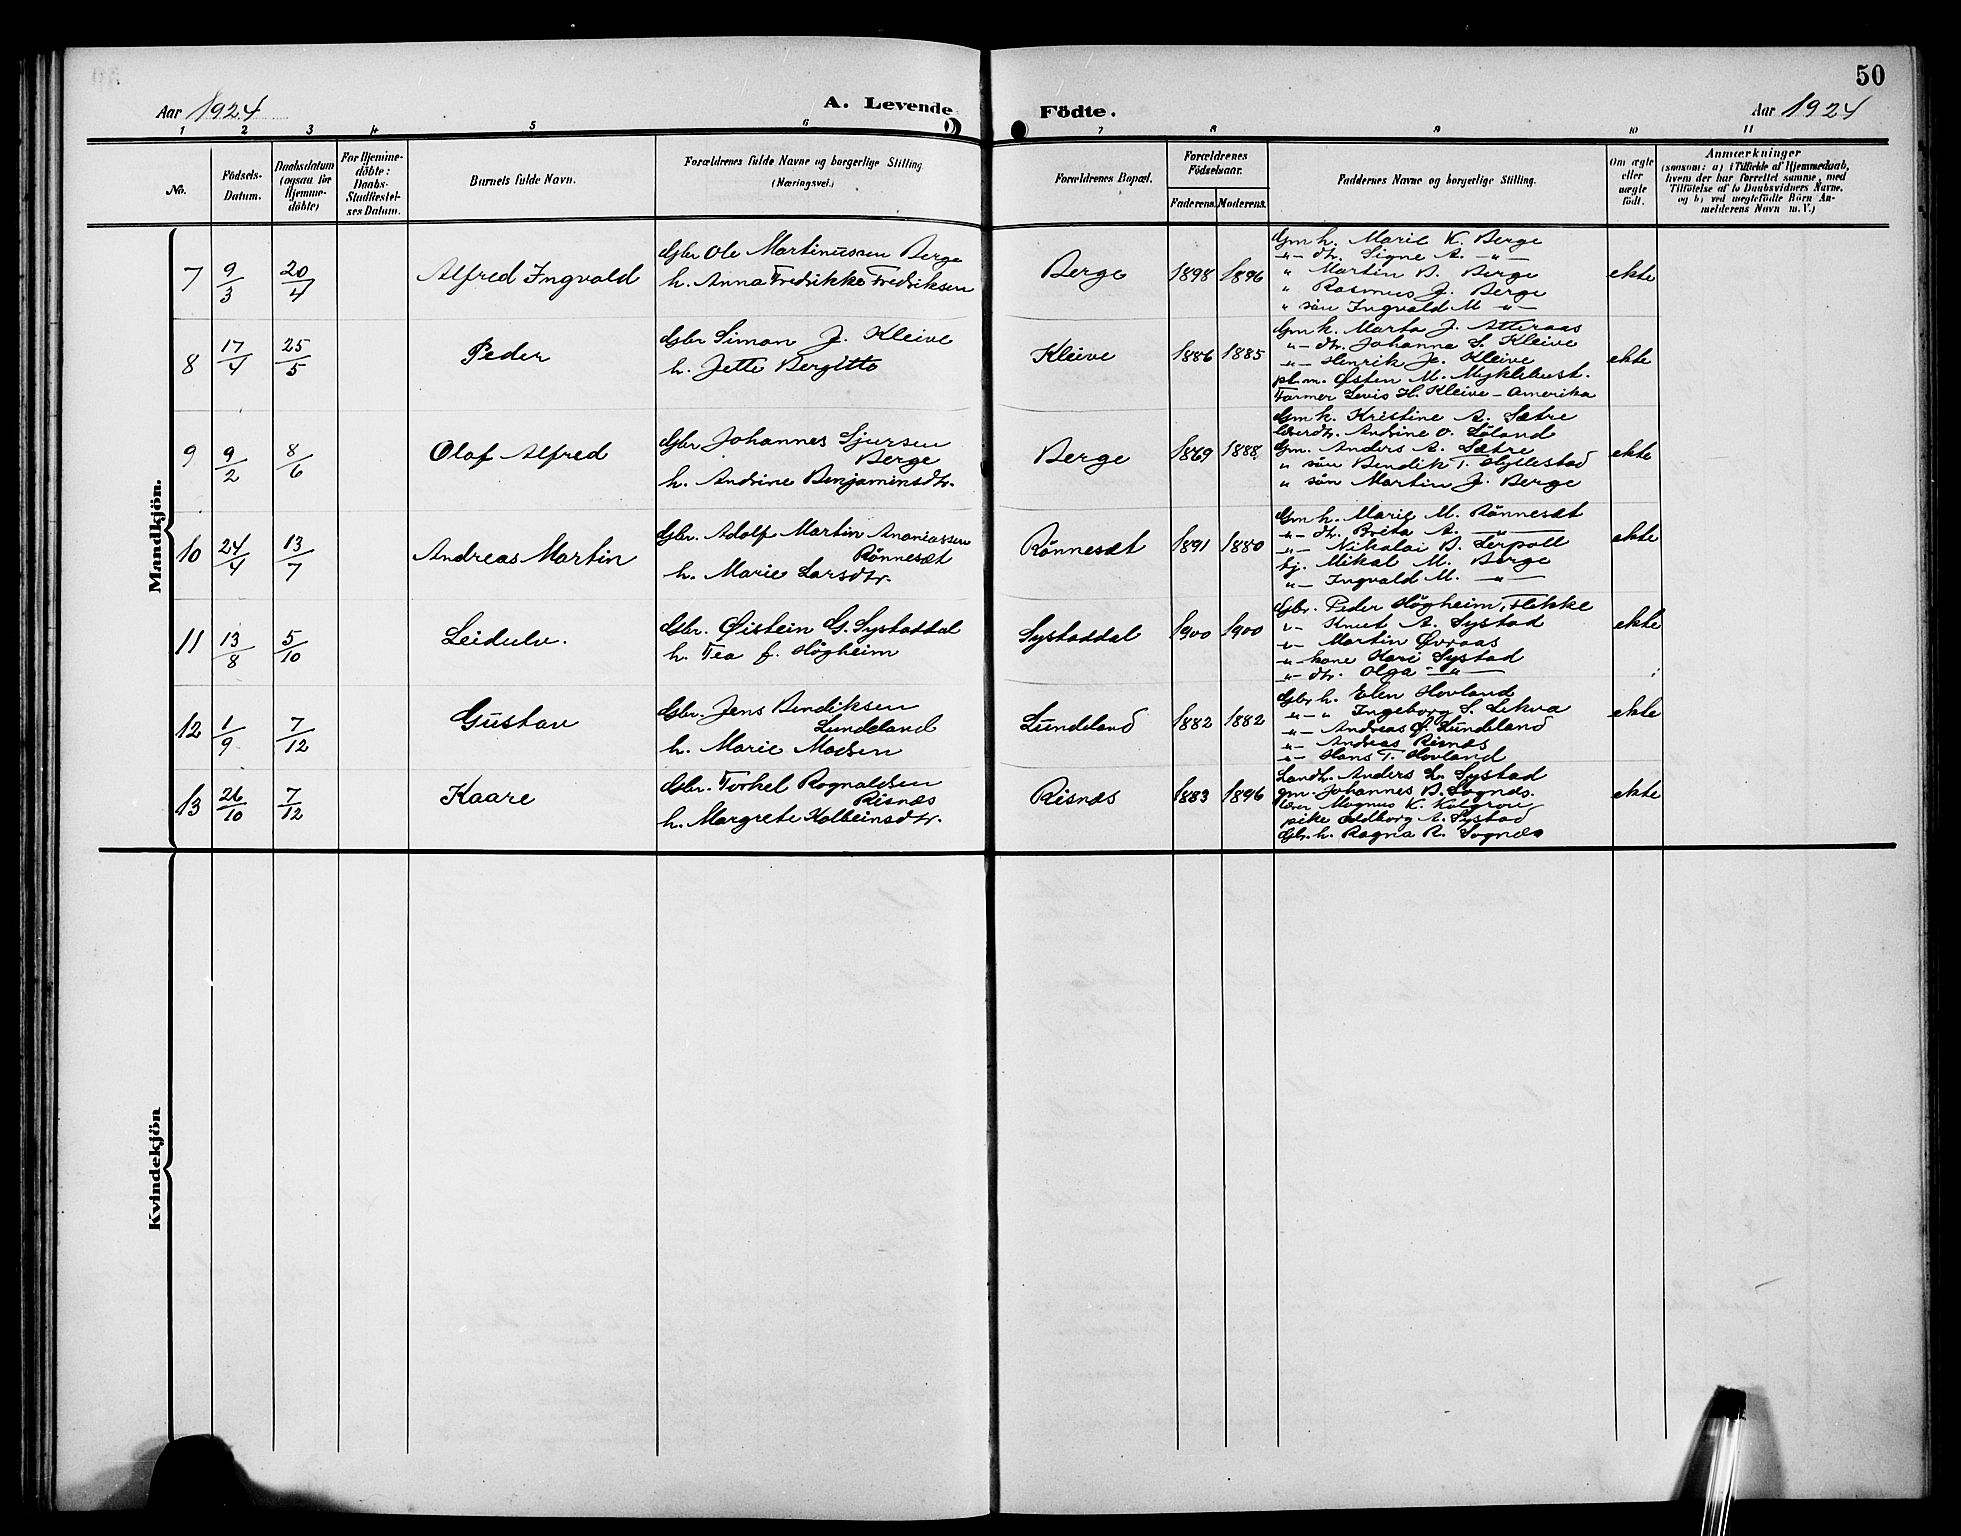 50
Aar 1924
A. Levende
Födte.
Aar 1924
1 2 3 4 5 6 7 8 9 10 11
No.
Födsels-
Datum.
Daabsdatum
(ogsaa för
Hjemme-
döbte)
For Hjemme-
döbte:
Daabs-
Stadfæstel-
ses Datum.
Barnets fulde Navn.
Forældrenes fulde Navne og borgerlige Stilling
(Næringsvei.)
Forældrenes Bopæl.
Forældrenes
Födselsaar.
Faderens. Moderens.
Faddernes Navne og borgerlige Stilling.
Om ægte
eller
uægte
födt.
Anmærkninger
(saasom: a) i Tilfælde af Hjemmedaab,
hvem der har forrettet samme, med
Tilföielse af to Daabsvidners Navne,
og b) ved uægtefödte Börn An-
melderens Navn m. V.)
Mandkjön.
7
9/3
20/4
Alfred Ingvald
Gbr Ole Martinussen Berge
h. Anna Fredrikke Fredriksen
Berge
1898
1896
Gm h. Marie K. Berge
-"- dtr. Signe A. -"-
" Martin B. Berge
" Rasmus J. Berge
" sön Ingvald M -"-
ekte
8
17/4
25/5
Peder
Gbr Simon J. Kleive
h. Jette Bergitte
Kleive
1886
1885
Gm k. Marta J. Atteraas
-"- dtr. Johanna S. Kleive
-"- Henrik Je. Kleive
pl.m. Østen M. Myklebust.
Farmer Levis H. Kleive - Amerika
ekte
9
9/2
8/6
Olaf Alfred
Gbr Johannes Sjursen
Berge
h. Andrine Benjaminsdtr.
Berge
1869
1888
Gm k. Kristine A. Sætre
Andrine O. Löland
Gm. Anders A. Sætre
" sön Bendik T. Hyllestad
" sön Martin J. Berge
ekte
10
24/4
13/7
Andreas Martin
Gbr. Adolf Martin Ananiassen
Rönnesæt
h. Marie Larsdtr.
Rönnesæt
1891
1880
Gm h. Marie M. Rönnesæt
-"- dtr. Brita A. -"-
-"- Nikolai B. Lerpoll
tj. Mikal M. Berge
-"- Ingvald M. -"-
ekte
11
13/8
5/10
Leidulv.
Gbr. Øistein G. Systaddal
h. Tea f. Högheim
Systaddal
1900
1900
Gbr. Peder Högheim, Flekke
-"- Knut A. Systad
-"- Martin Øvraas
-"- kone Kari Systad
-"- dtr. Olga -"-
ekte
12
1/9
7/12
Gustav
Gbr. Jens Bendiksen
Lundeland
h. Marie Madsen
Lundeland
1882
1882
Gbr h. Elen Hovland
-"- " Ingeborg S. Lekva
-"- Andreas O. Lundeland
-"- Andreas Risnæs
-"- Hans T. Hovland
ekte
13
26/10
7/12
Kaare
Gbr. Torkel Ragnaldsen
Risnæs
h. Margrete Kolbeinsdtr.
Risnæs
1883
1896
Landh. Anders L. Systad
gm. Johannes B. Sognæs.
Magnus K. Kolgrov
pike Oddborg A. Systad
Gbr. h. Ragna R. Sognæs
ekte
Kvindekjön